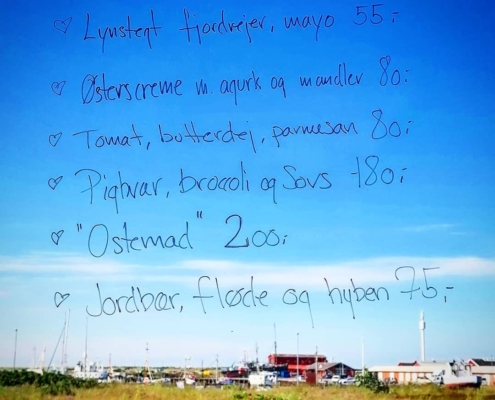 ♡ Lynstegt fjordrejer, mayo 55,-
♡ Østerscreme m. agurk og mandler 80,-
♡ Tomat, butterdej, parmesan 80,-
♡ Pighvar, broccoli og Sovs 180,-
♡ "Ostemad" 200,-
♡ Jordbær, fløde og hyben 75,-